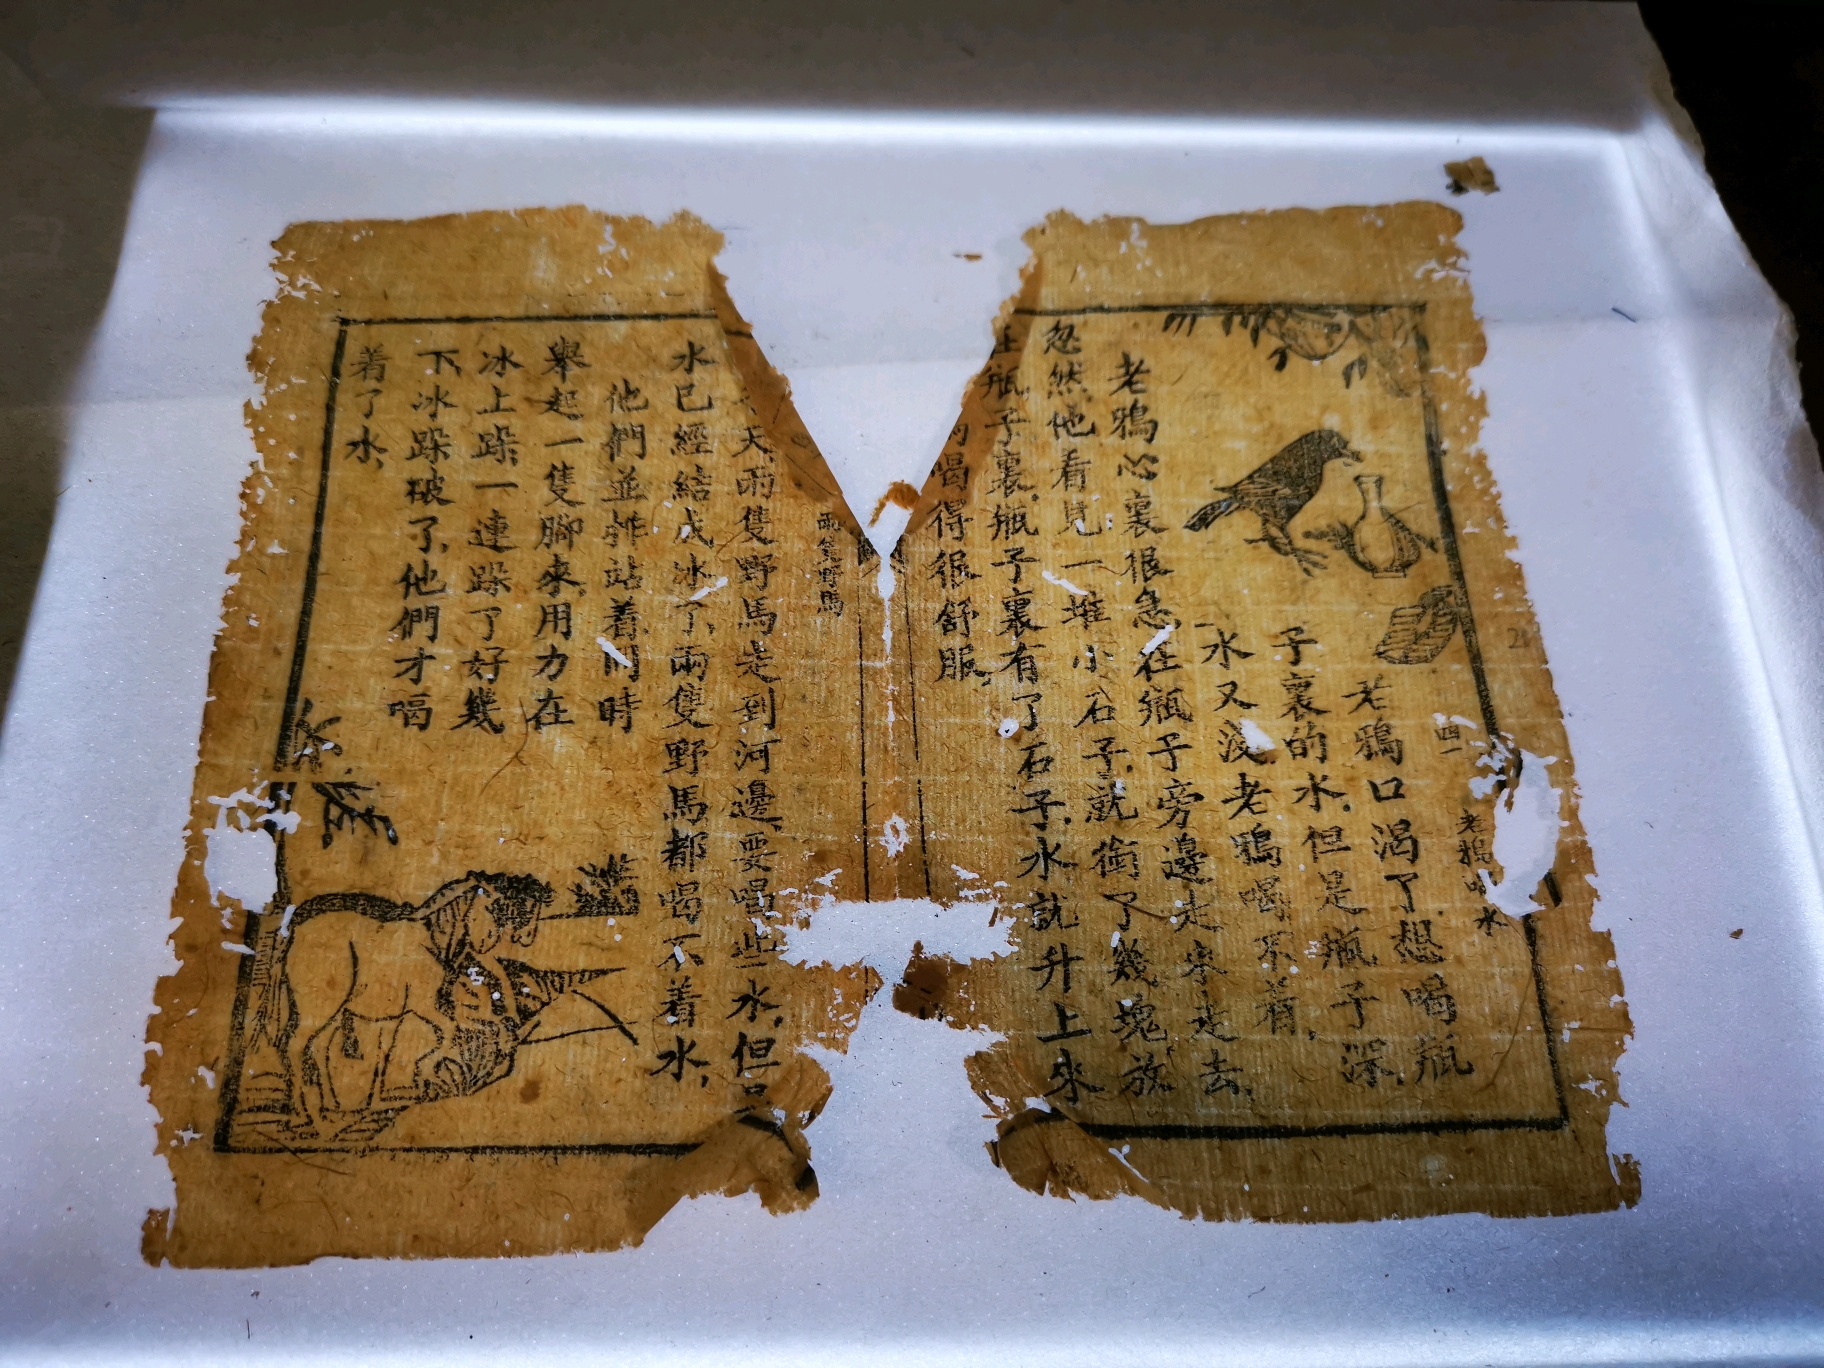 四一
老鴉 水
老鴉口渴了想喝瓶
子裏的水但是瓶子深,
水又淺老鴉喝不着,
老鴉心裏很急,在瓶子旁邊走來走去,
忽然他看見一堆小石子,就銜了幾塊放
瓶子裏,瓶子裏有了石子,水就升上來
喝得很舒服,
兩隻野馬
天,兩隻野馬走到河邊,要喝些水,但
水已經結成冰了,兩隻野馬都喝不着水,
他們並排站着,同時
舉起一隻腳來,用力在
冰上跺,一連跺了好幾
下,冰跺破了,他們才喝
着了水,